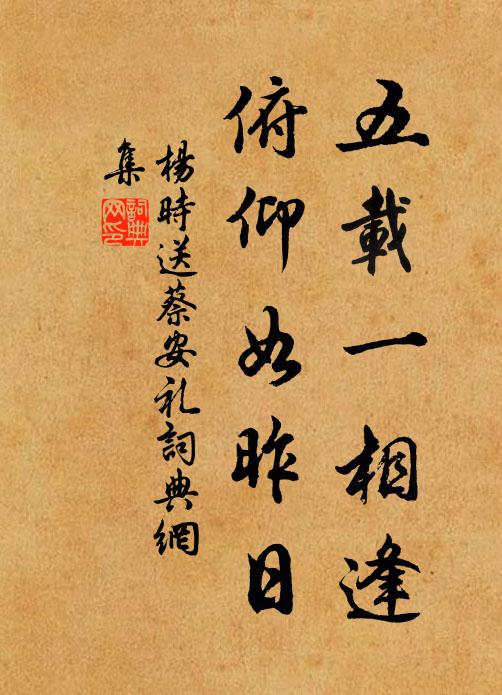 五載一相逢
俯仰如昨日
楊時送蔡安礼詞典網
集
詞典網印